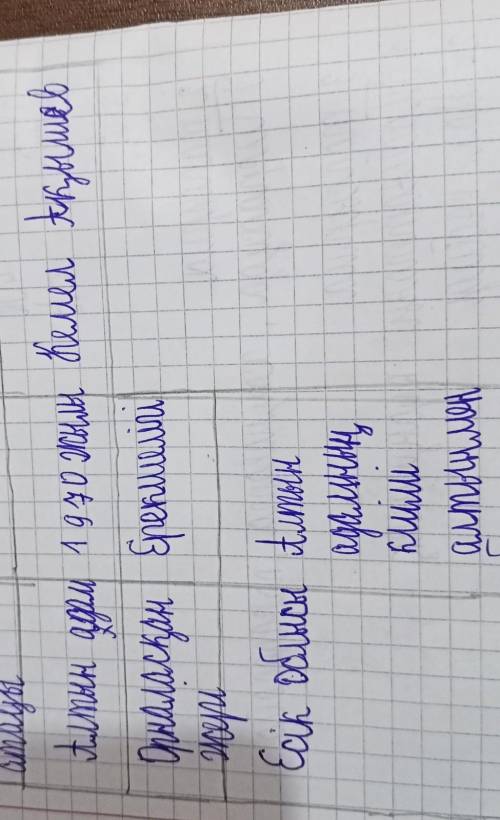 атауы
Алтын адам 1970 жылы Кемел Ақышев
Орналасқан Ерекшелігі
жері
Есік облысы Алтын
адамның
киімі
алтынмен